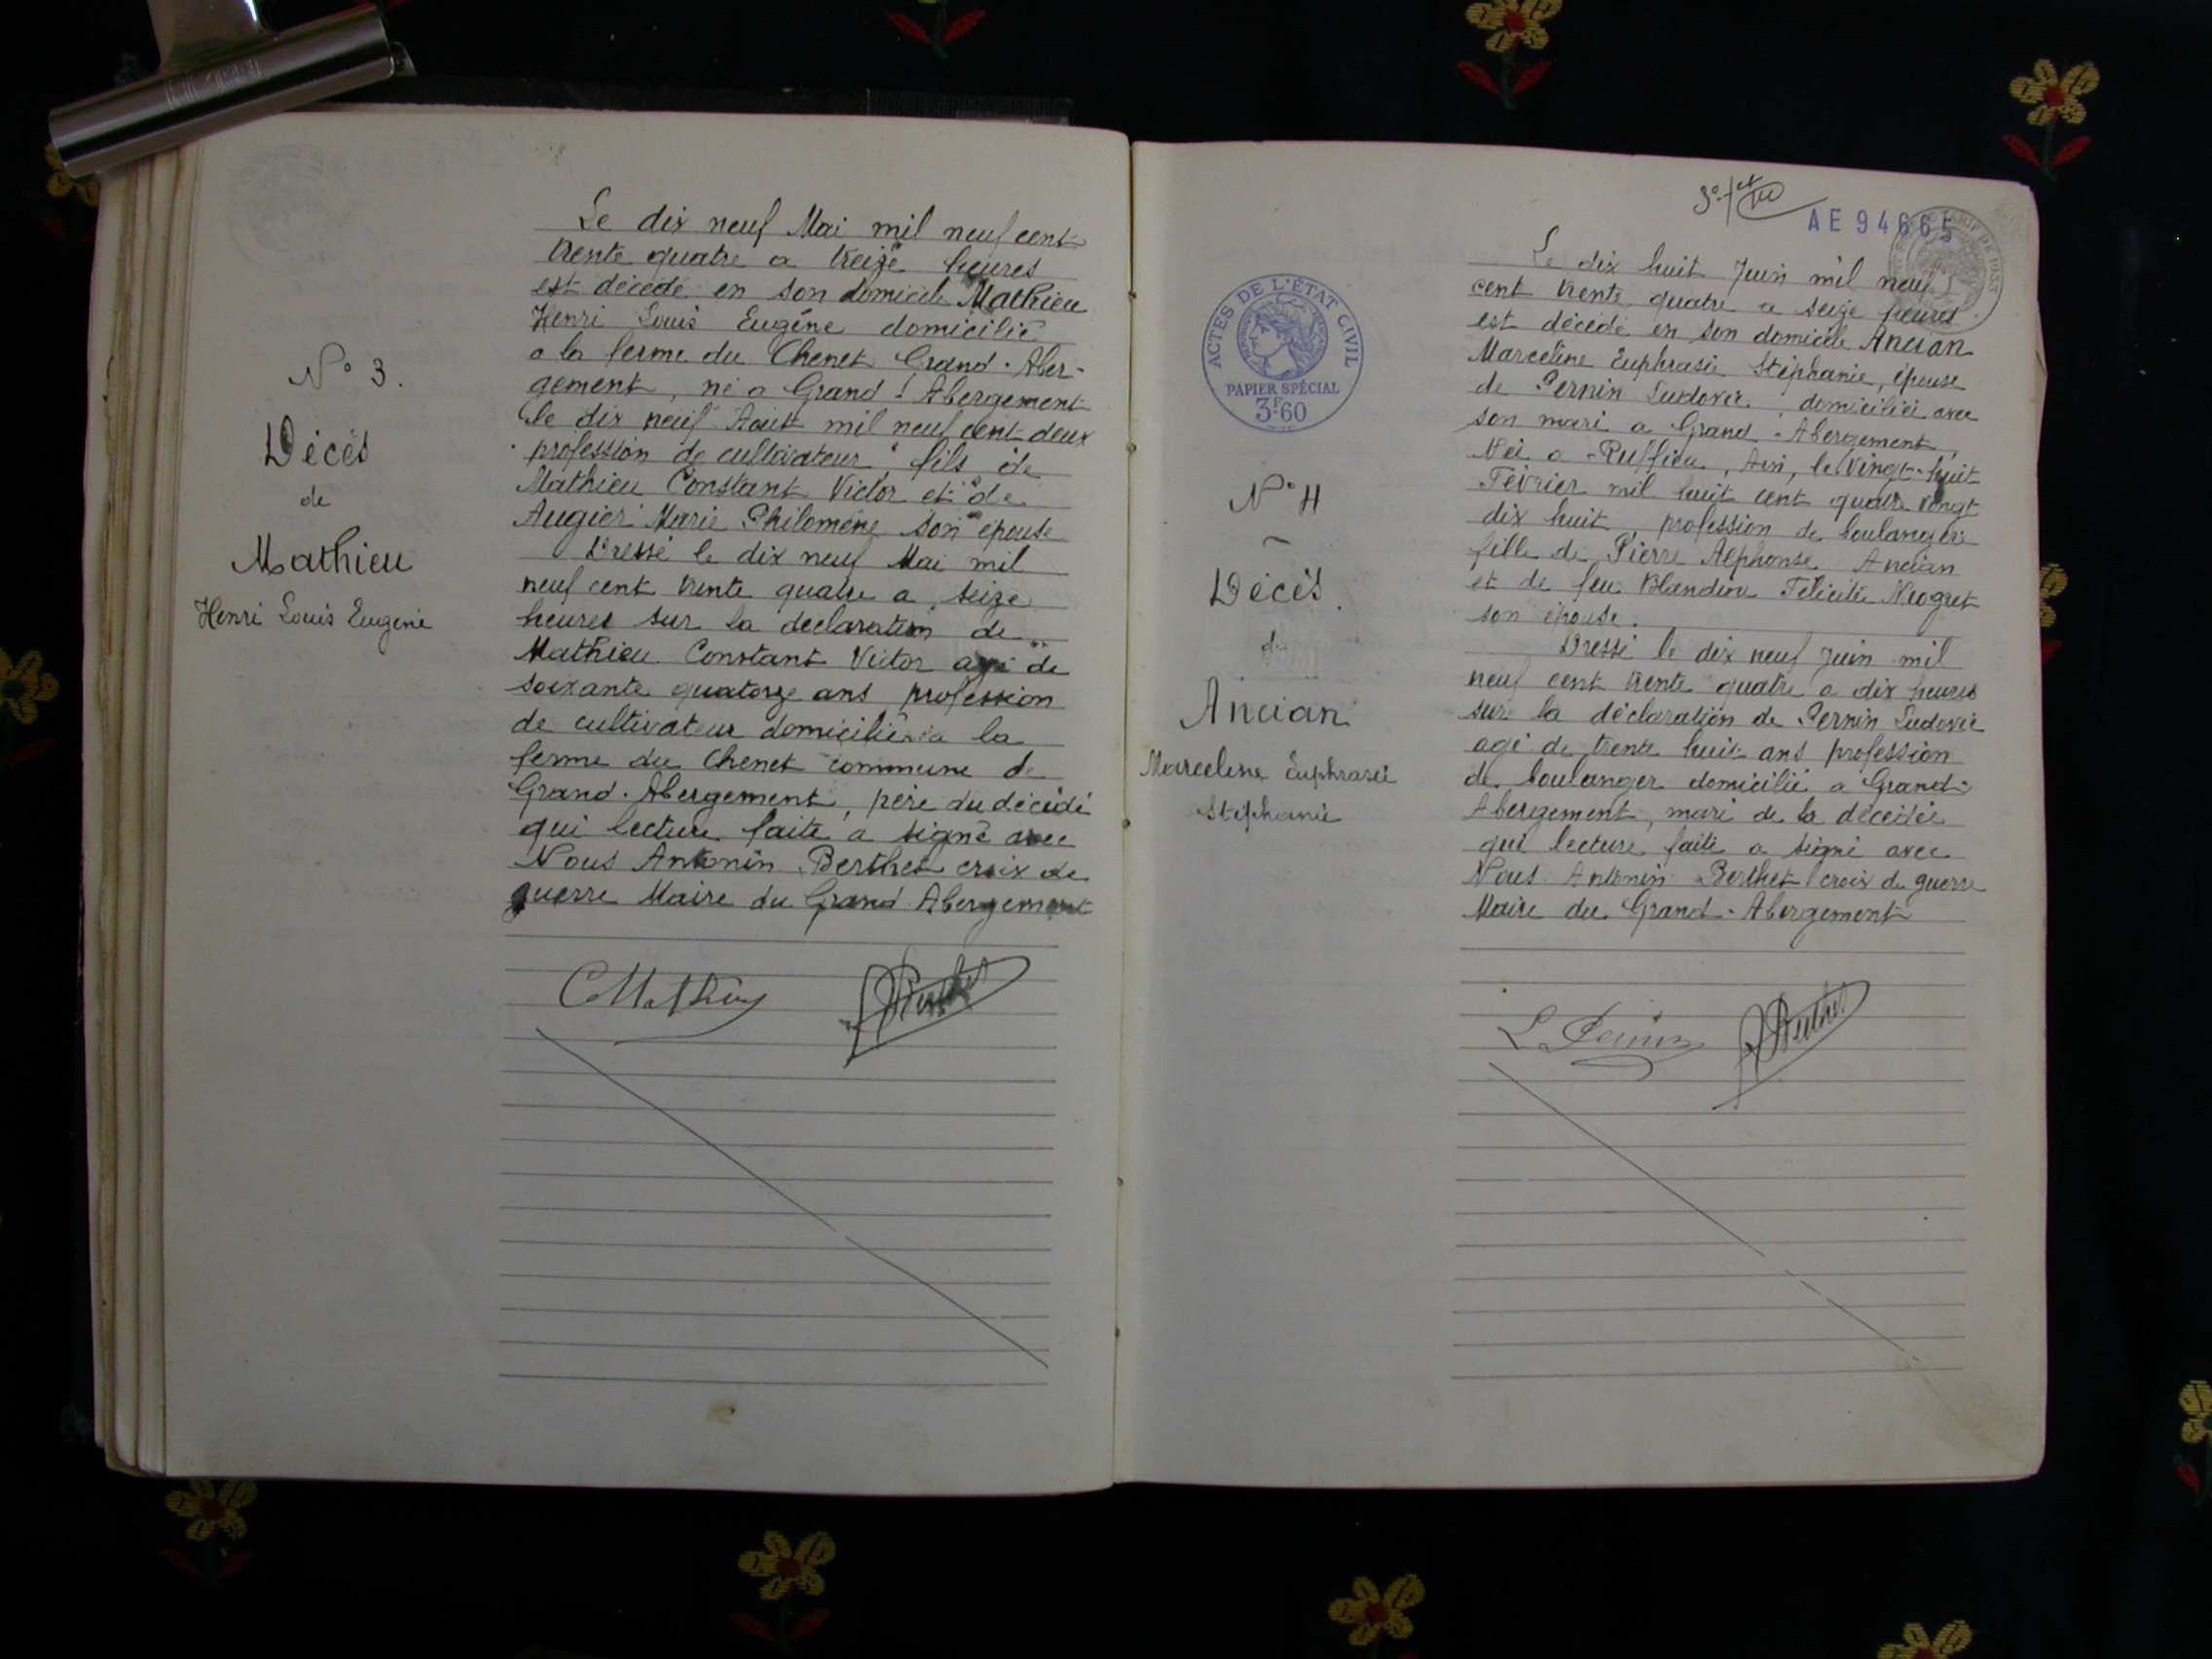 N° 3.
Décès
de
Mathieu
Henri Louis Eugène
Le dix neuf Mai mil neuf cent
trente quatre a treize heures
est décédé en son domicile Mathieu
Henri Louis Eugéne domicilié
a la ferme du Chenet Grand-Aber-
gement, né a Grand-Abergement
le dix neuf Aout mil neuf cent deux
profession de cultivateur, fils de
Mathieu Constant Victor et de
Augier Marie Philomène son epouse
Dressé le dix neuf Mai mil
neuf cent trente quatre a seize
heures sur la declaration de
Mathieu Constant Victor agé de
soixante quatorze ans profession
de cultivateur domicilié a la
ferme du Chenet commune de
Grand-Abergement, père du décédé
qui lecture faite a signé avec
Nous Antonin Berthet croix de
guerre Maire du Grand Abergement
C Mathieu
Berthet
AE 94665
ACTES DE L'ÉTAT CIVIL
PAPIER SPÉCIAL
3F60
N° 4
Décès
de
Ancian
Marceline Euphrasie
Stéphanie
Le dix huit Juin mil neuf
cent trente quatre a seize heures
est décédé en son domicile Ancian
Marceline Euphrasie Stéphanie, épouse
de Pernin Ludovic domiciliée avec
son mari a Grand-Abergement,
Née a Ruffieu, Ain, le vingt-huit
Février mil huit cent quatre vingt
dix huit profession de boulangère
fille de Pierre Alphonse Ancian
et de feu Blandine Félicité Neogret
son épouse.
Dressé le dix neuf Juin mil
neuf cent trente quatre a dix heures
sur la déclaration de Pernin Ludovic
agé de trente huit ans profession
de boulanger domicilié a Grand-
Abergement, mari de la décédée
qui lecture faite a signé avec
Nous Antonin Berthet croix de guerre
Maire du Grand-Abergement
L Pernin
Berthet